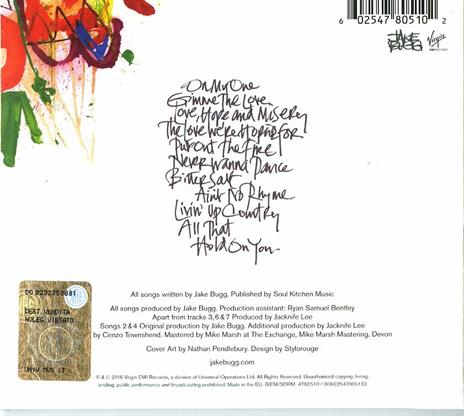 6 02547 80510 2
JAKE BUGG
Virgin
On My One
Gimme The Love
Love, Hope and Misery
The Love We're Hoping For
Put Out The Fire
Never Wanna Dance
Bitter Salt
Ain't No Rhyme
Livin' Up Country
All That
Hold On You
DEST. VENDITA
NOLEG VIETATO
All songs written by Jake Bugg. Published by Soul Kitchen Music
All songs produced by Jake Bugg. Production assistant: Ryan Samuel Bentley
Apart from tracks 3, 6 & 7 Produced by Jacknife Lee
Songs 2 & 4 Original production by Jake Bugg. Additional production by Jacknife Lee
by Cenzo Townshend. Mastered by Mike Marsh at The Exchange, Mike Marsh Mastering. Devon
Cover Art by Nathan Pendlebury. Design by Stylorouge
jakebugg.com
℗ & © 2016 Virgin EMI Records, a division of Universal Operations Limited. All rights reserved. Unauthorised copying, hiring,
lending, public performance and broadcasting prohibited. Made in the EU. BIEM/SDRM 4780510 / 00602547805102